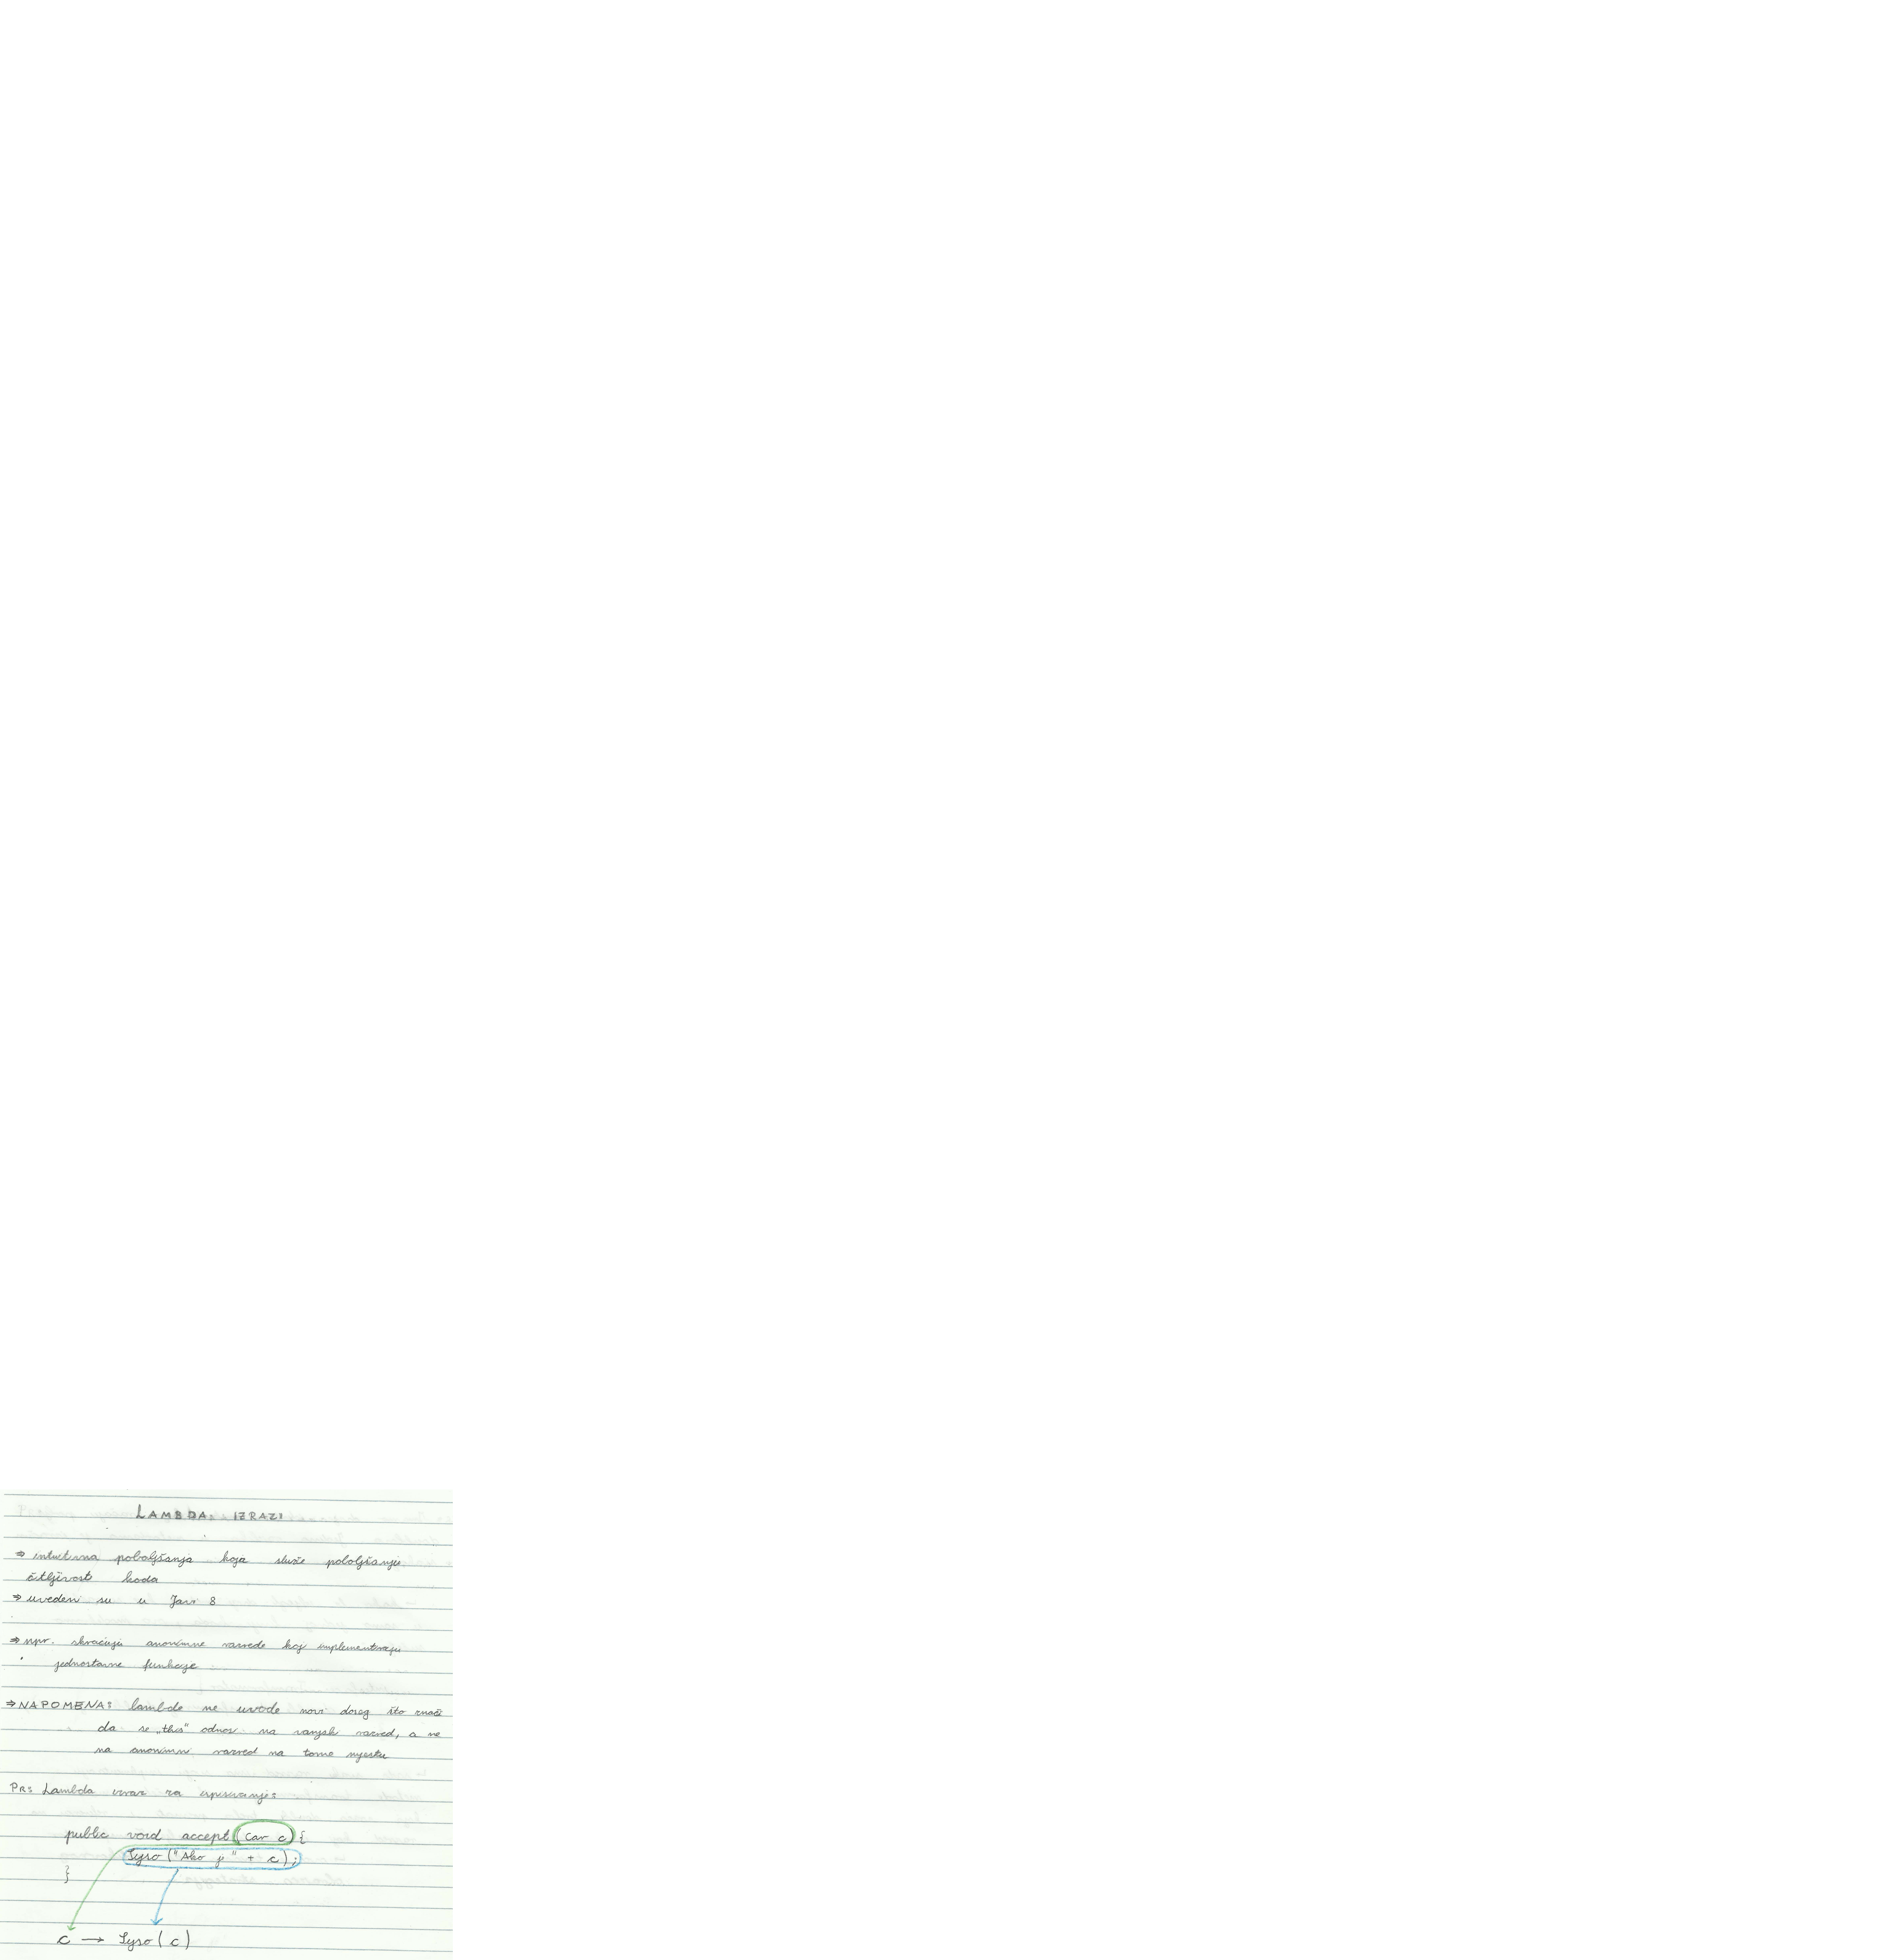 LAMBDA IZRAZI
⇒ intuitivna poboljšanja koja služe poboljšanju
čitljivosti koda
⇒ uvedeni su u Javi 8
⇒ npr. skraćuju anonimne razrede koj implementiraju
jednostavne funkcije
⇒ NAPOMENA: lambde ne uvode novi doseg što znači
da se „this“ odnosi na vanjski razred, a ne
na anonimni razred na tome mjestu
PR: Lambda izraz za ispisivanje:
public void accept (Car c) {
Syso ("Ako je " + c);
}
c → Syso ( c )